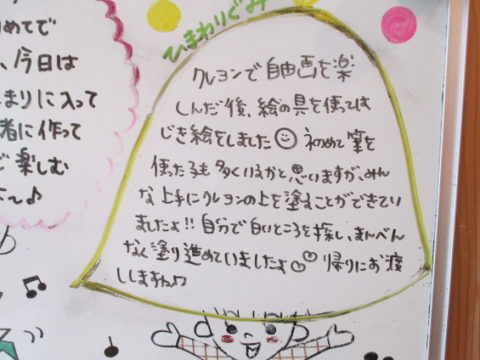 めてで
、今日は
まりに入って
者に作って
で楽しむ
た〜♪
ひまわりぐみ
クレヨンで自由画を楽
しんだ後、絵の具を使っては
じき絵をしました 初めて筆を
使った子も多くいるかと思いますが、みん
な上手にクレヨンの上を塗ることができてい
ましたよ!!自分で白いところを探し、まんべん
なく塗り進めていましたよ♡♡ 帰りにお渡
ししますね♫